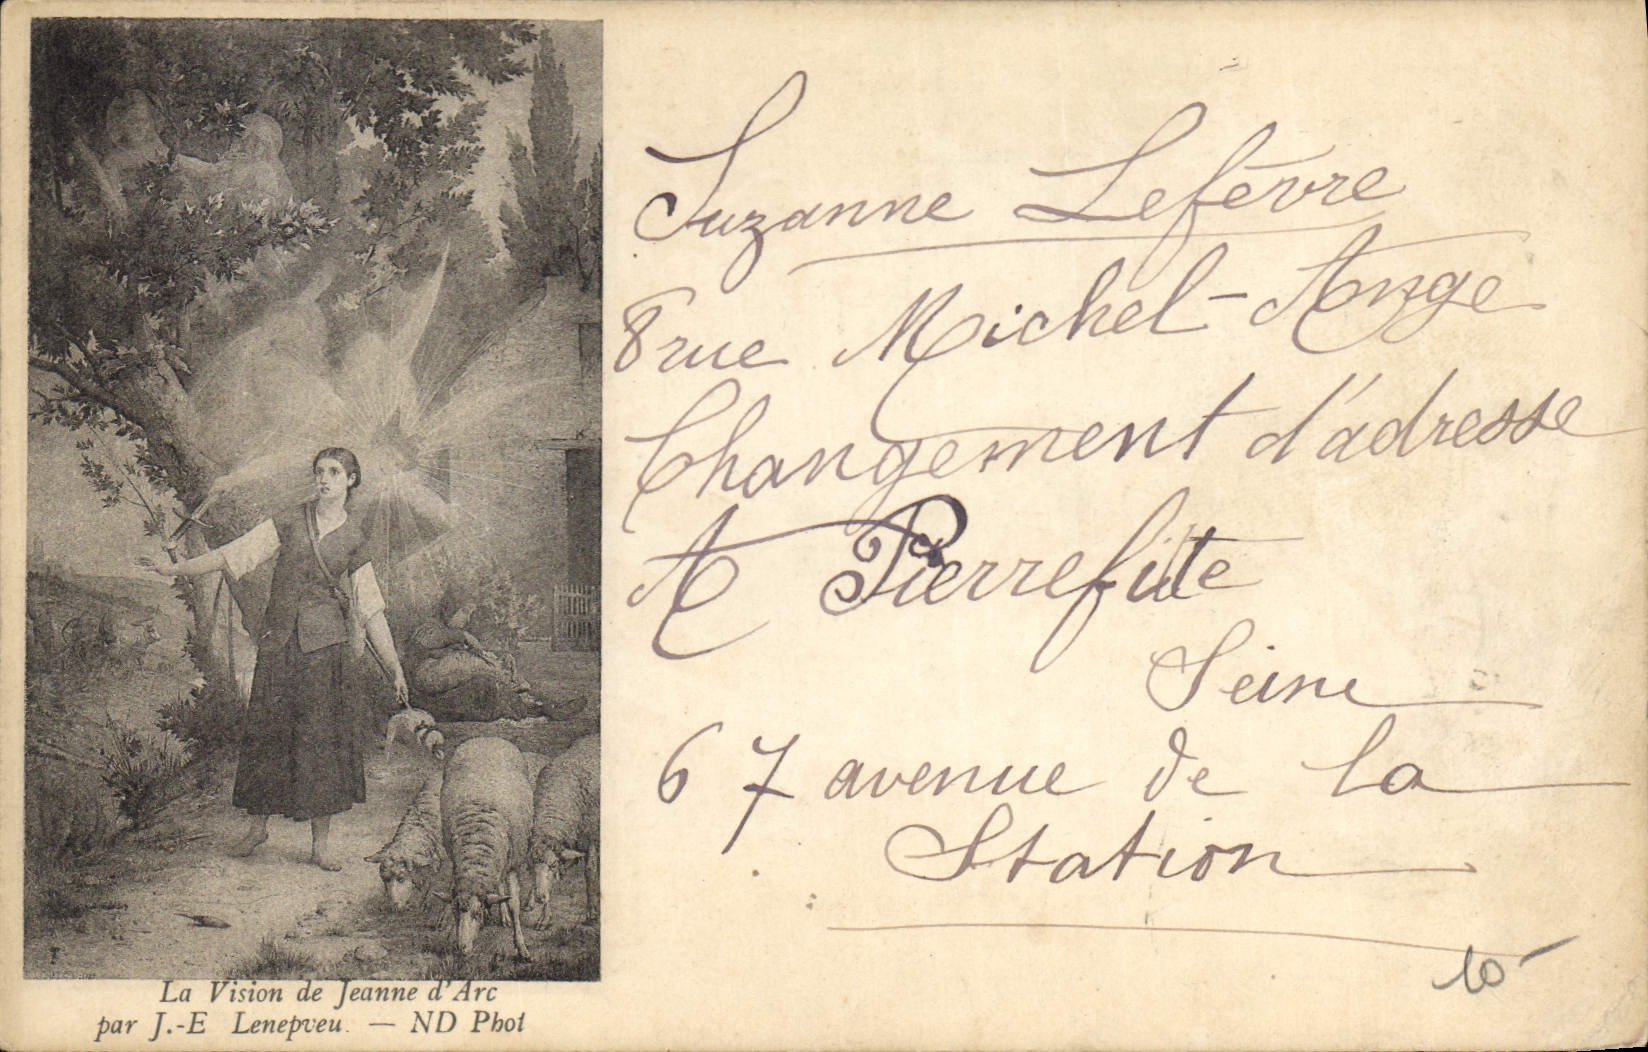 Suzanne Lefèvre
8 rue Michel-Ange
Changement d'adresse
A Pierrefite
Seine
67 avenue de la
Station
10-
La Vision de Jeanne d'Arc
par J.-E Lenepveu. — ND Phot